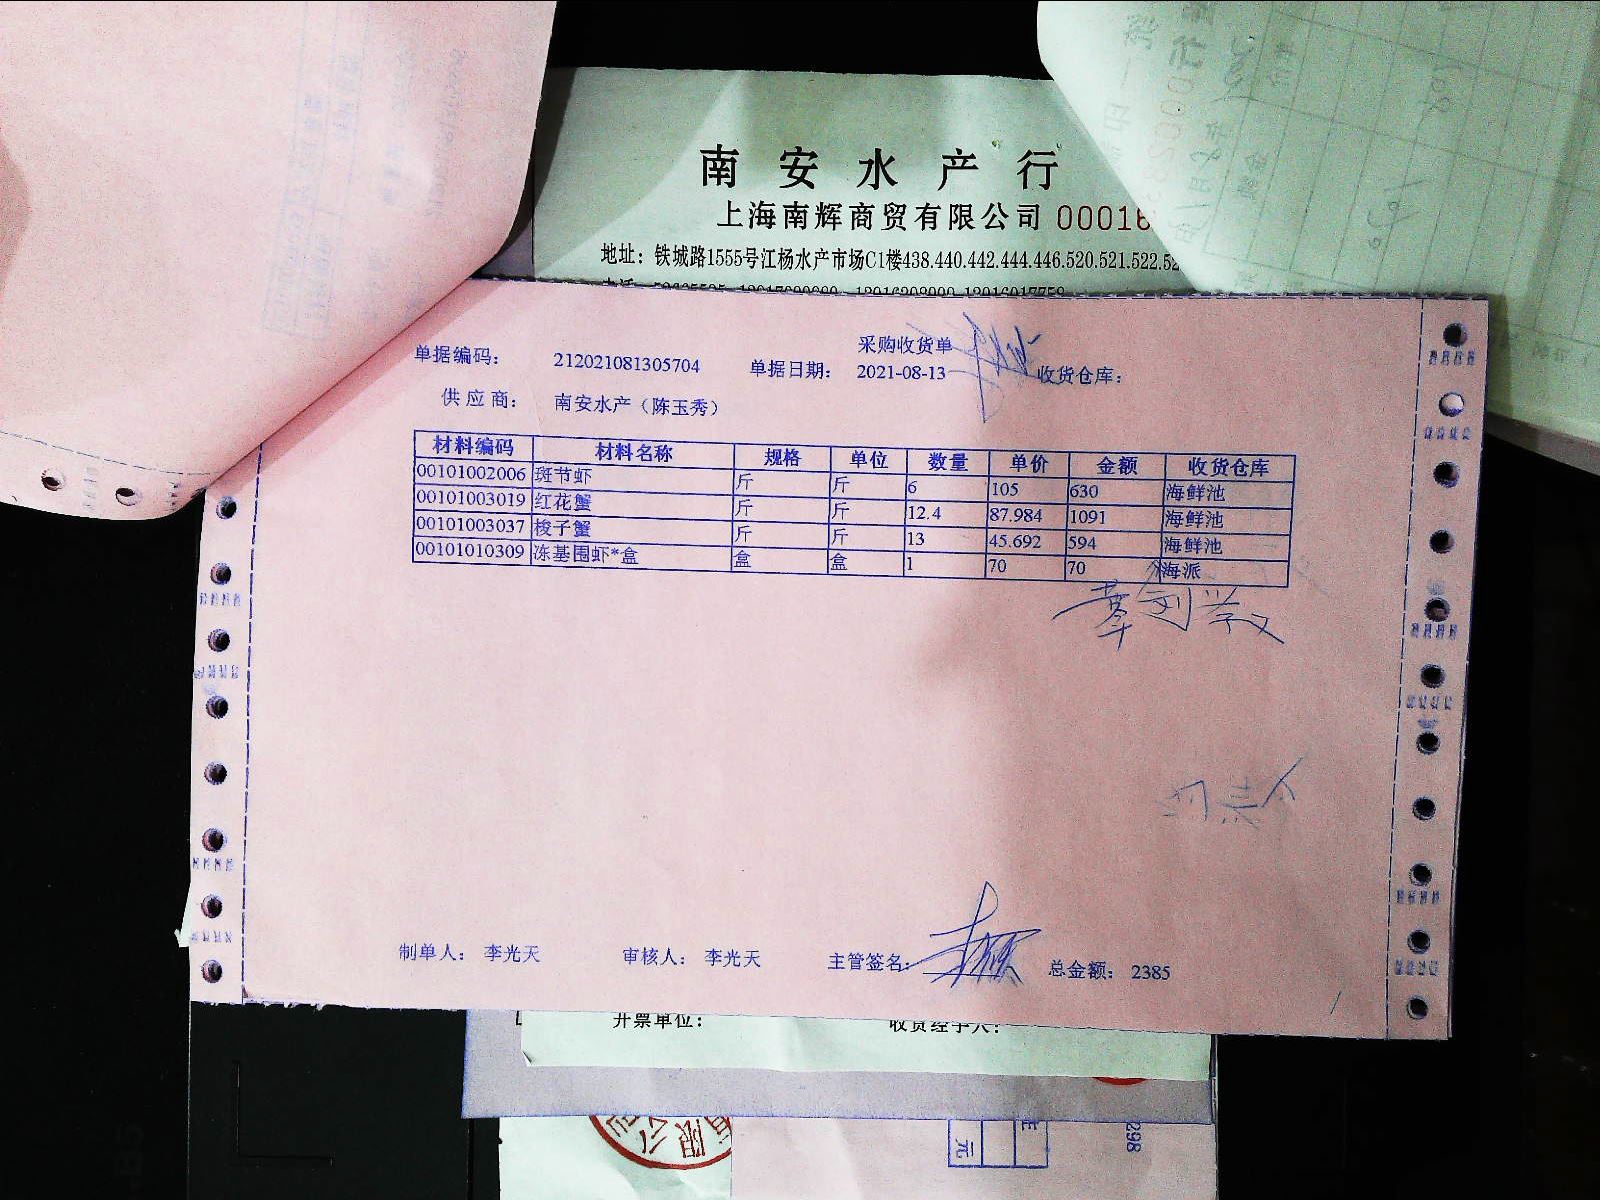 南安水产行
上海南辉商贸有限公司 00016
地址：铁城路1555号江杨水产市场C1楼438.440.442.444.446.520.521.522.52
采购收货单
单据编码： 212021081305704 单据日期： 2021-08-13 收货仓库：
供应商： 南安水产（陈玉秀）
材料编码 材料名称 规格 单位 数量 单价 金额 收货仓库
00101002006 斑节虾 斤 斤 6 105 630 海鲜池
00101003019 红花蟹 斤 斤 12.4 87.984 1091 海鲜池
00101003037 梭子蟹 斤 斤 13 45.692 594 海鲜池
00101010309 冻基围虾*盒 盒 盒 1 70 70 海派
制单人： 李光天 审核人： 李光天 主管签名： 总金额： 2385
开票单位： 收货经手人：
298
元